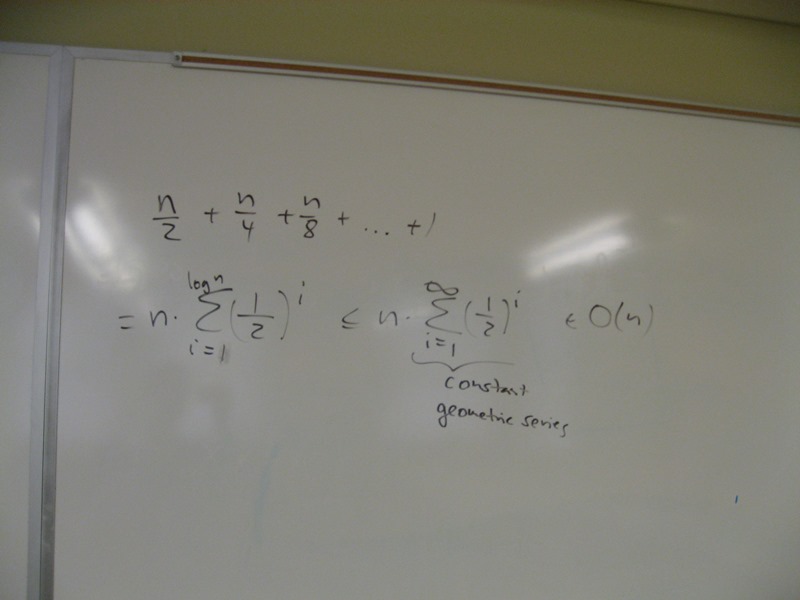 n/2 + n/4 + n/8 + ... + 1
= n · ∑_{i=1}^{log n} (1/2)^i ≤ n · ∑_{i=1}^{∞} (1/2)^i ∈ O(n)
constant
geometric series